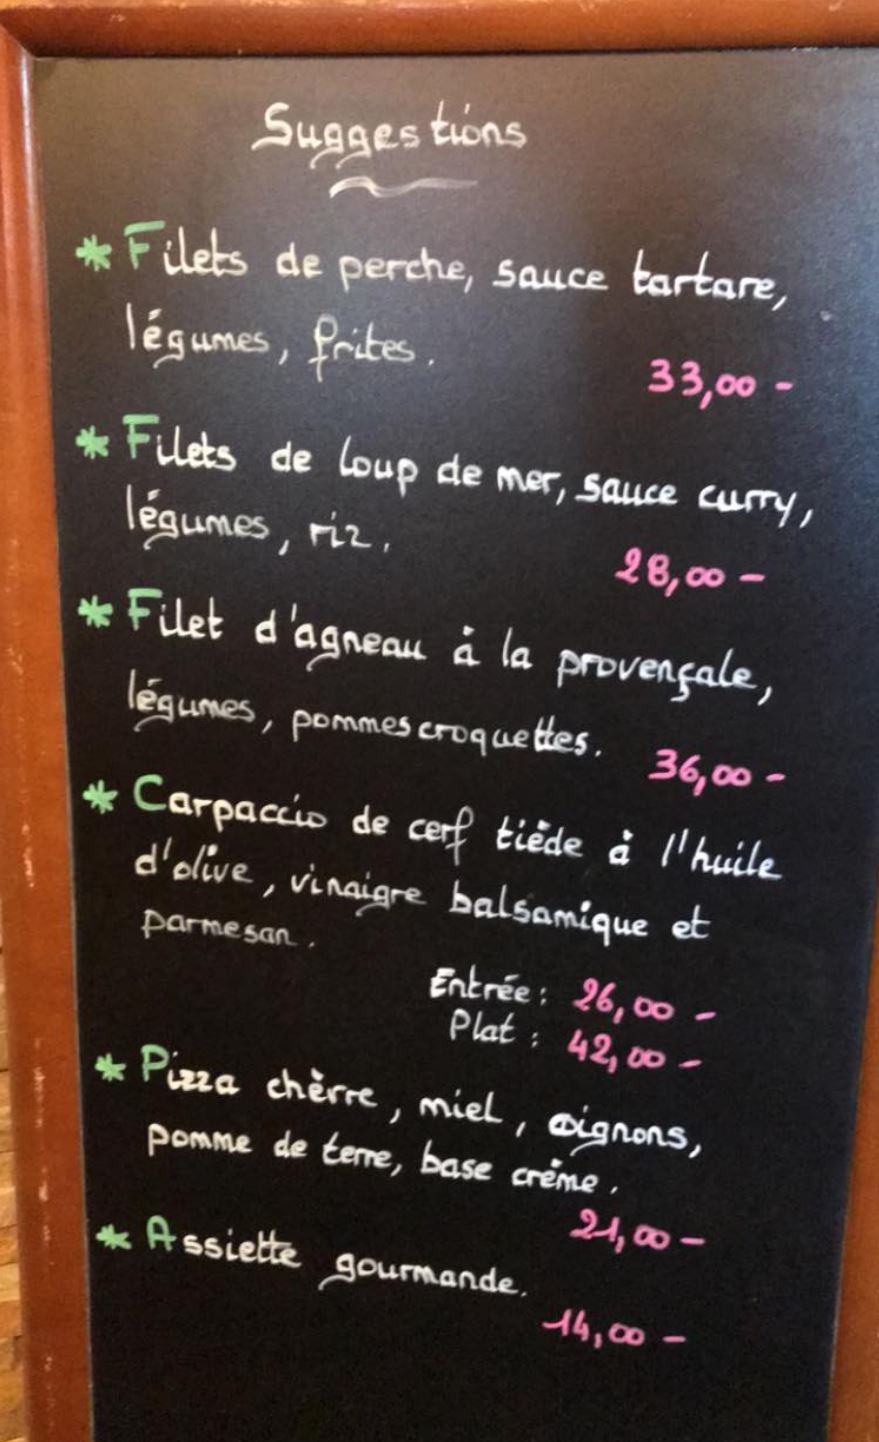 Suggestions
* Filets de perche, sauce tartare,
légumes, frites.
33,00 -
* Filets de loup de mer, sauce curry,
légumes, riz.
28,00 -
* Filet d'agneau à la provençale,
légumes, pommes croquettes.
36,00 -
* Carpaccio de cerf tiède à l'huile
d'olive, vinaigre balsamique et
parmesan.
Entrée : 26,00 -
Plat : 42,00 -
* Pizza chèvre, miel, oignons,
pomme de terre, base crème.
21,00 -
* Assiette gourmande.
14,00 -